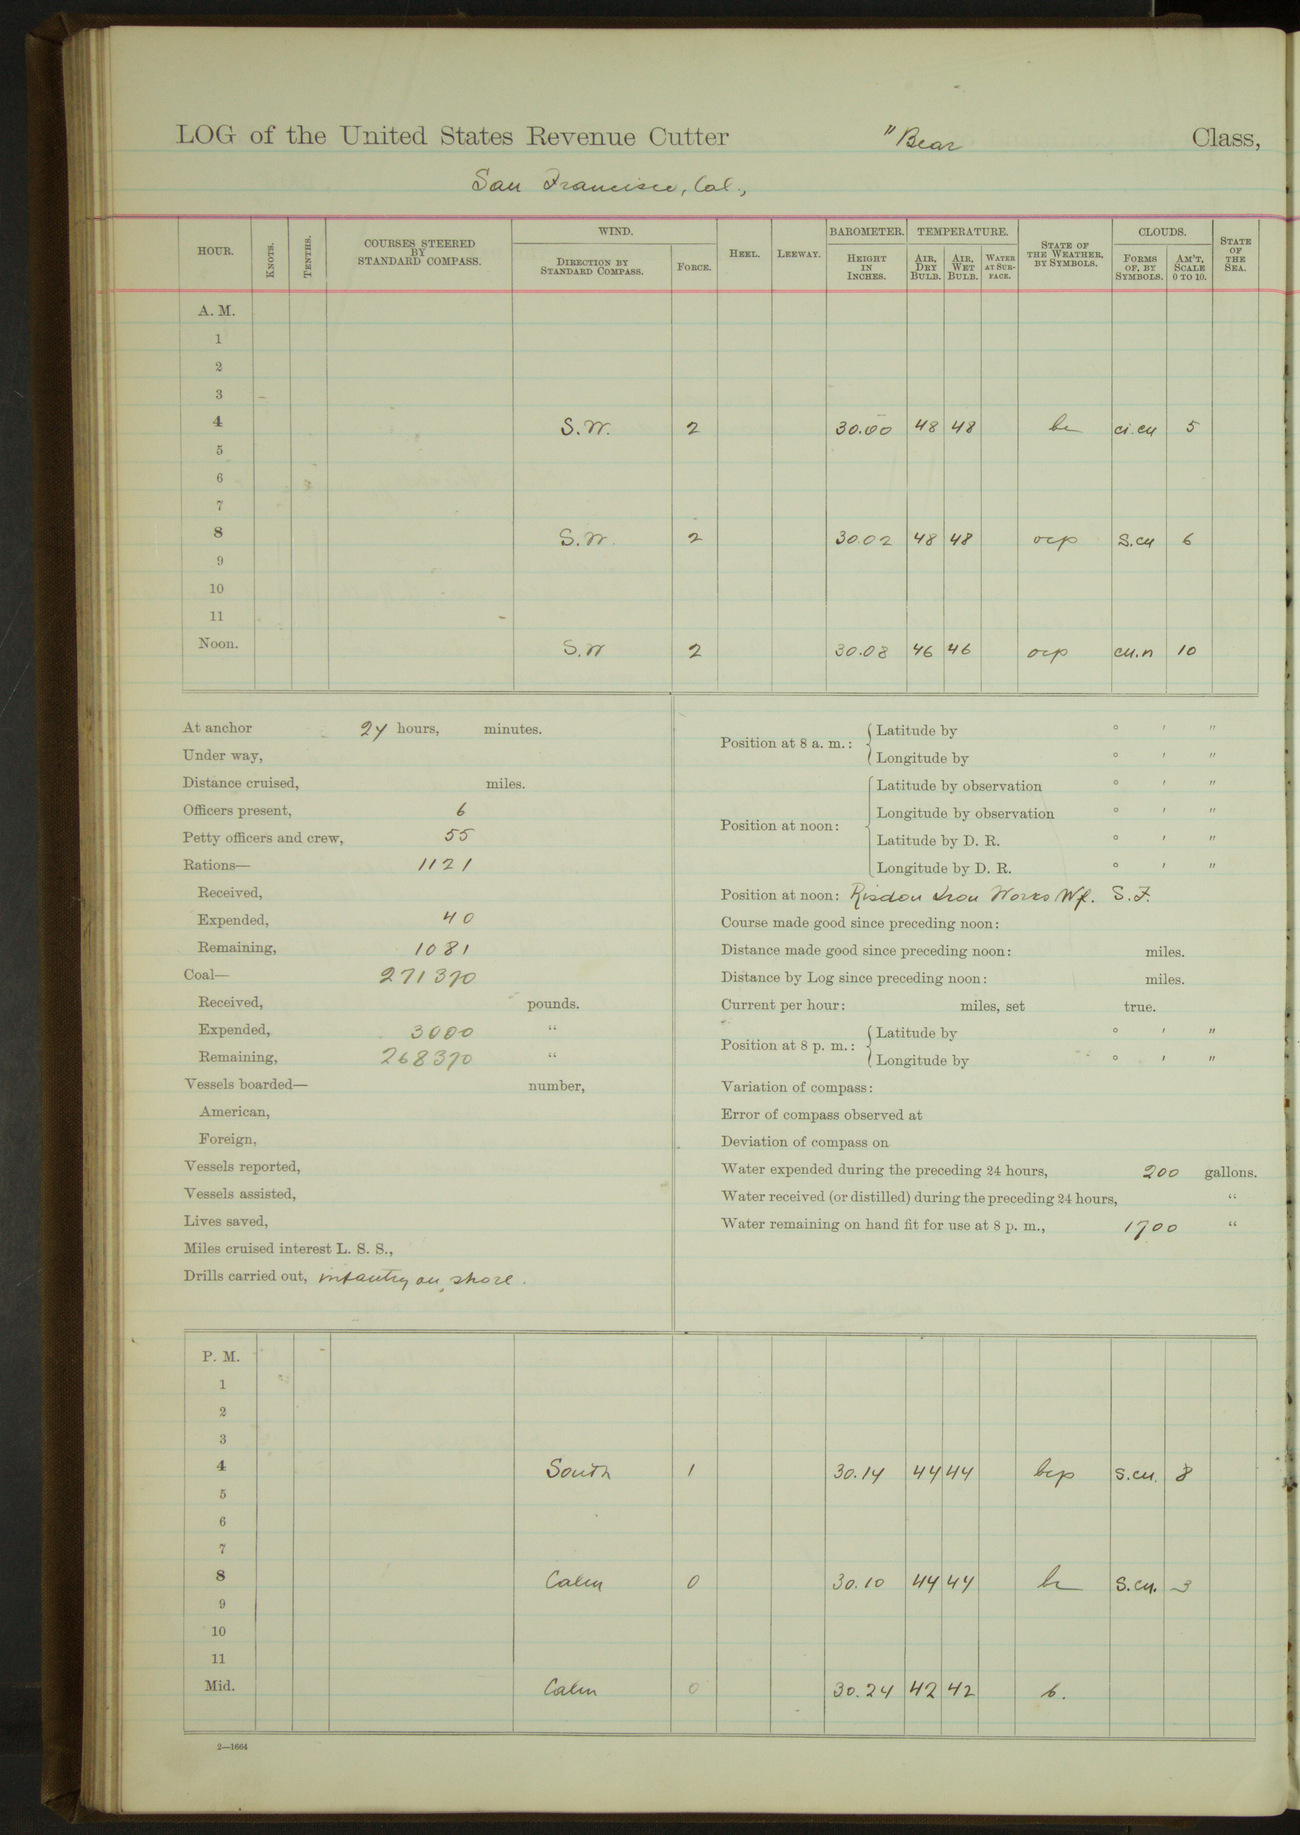 LOG of the United States Revenue Cutter "Bear Class,
San Francisco, Cal.,
HOUR. KNOTS. TENTHS. COURSES STEERED BY STANDARD COMPASS. WIND. DIRECTION BY STANDARD COMPASS. FORCE. HEEL. LEEWAY. BAROMETER. HEIGHT IN INCHES. TEMPERATURE. AIR, DRY BULB. AIR, WET BULB. WATER AT SURFACE. STATE OF THE WEATHER, BY SYMBOLS. CLOUDS. FORMS OF, BY SYMBOLS. AM'T, SCALE 0 TO 10. STATE OF THE SEA.
A. M.
1
2
3
4 S.W. 2 30.00 48 48 bc ci.cu 5
5
6
7
8 S.W. 2 30.02 48 48 ocp S.cu 6
9
10
11
Noon. S.W 2 30.08 46 46 ocp cu.n 10
At anchor 24 hours, minutes.
Under way,
Distance cruised, miles.
Officers present, 6
Petty officers and crew, 55
Rations— 1121
Received,
Expended, 40
Remaining, 1081
Coal— 271370
Received, pounds.
Expended, 3000 "
Remaining, 268370 "
Vessels boarded— number,
American,
Foreign,
Vessels reported,
Vessels assisted,
Lives saved,
Miles cruised interest L. S. S.,
Drills carried out, infantry on shore.
Position at 8 a. m.: Latitude by ° ′ ″
Longitude by ° ′ ″
Position at noon: Latitude by observation ° ′ ″
Longitude by observation ° ′ ″
Latitude by D. R. ° ′ ″
Longitude by D. R. ° ′ ″
Position at noon: Risdon Iron Works Wf. S.F.
Course made good since preceding noon:
Distance made good since preceding noon: miles.
Distance by Log since preceding noon: miles.
Current per hour: miles, set true.
Position at 8 p. m.: Latitude by ° ′ ″
Longitude by ° ′ ″
Variation of compass:
Error of compass observed at
Deviation of compass on
Water expended during the preceding 24 hours, 200 gallons.
Water received (or distilled) during the preceding 24 hours, "
Water remaining on hand fit for use at 8 p. m., 1700 "
P. M.
1
2
3
4 South 1 30.14 44 44 bcp S.cu. 8
5
6
7
8 Calm 0 30.10 44 44 bc S.cu. 3
9
10
11
Mid. Calm 0 30.24 42 42 b.
2—1664